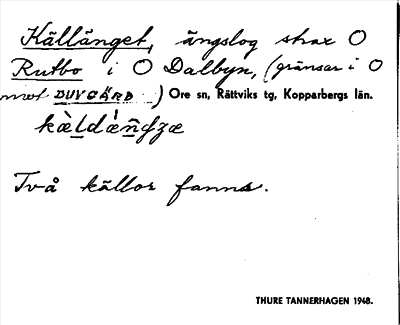 Källänget, ängslog strax O
Rutbo i O Dalbyn, (gränsar i O
mot DUVGÅRD ) Ore sn, Rättviks tg, Kopparbergs län.
Två källor fanns.
THURE TANNERHAGEN 1948.